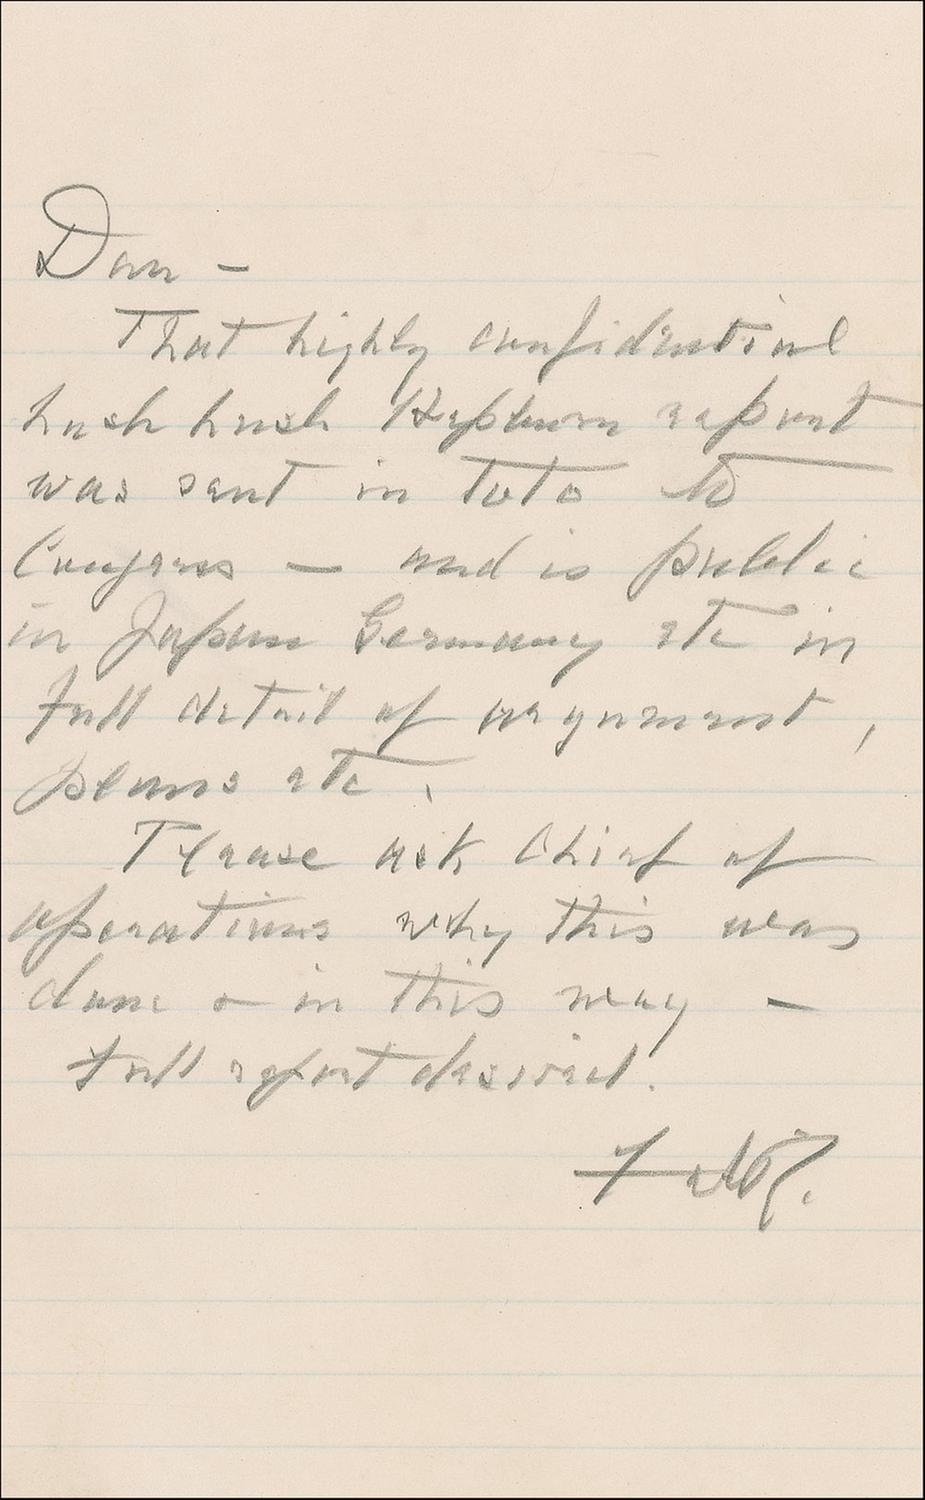 Dan –
That highly confidential
hush hush Hepburn report
was sent in toto to
Congress – and is public
in Japan Germany etc in
full detail of argument,
plans etc.
Please ask Chief of
operations why this was
done & in this way –
Full report desired.
FDR.